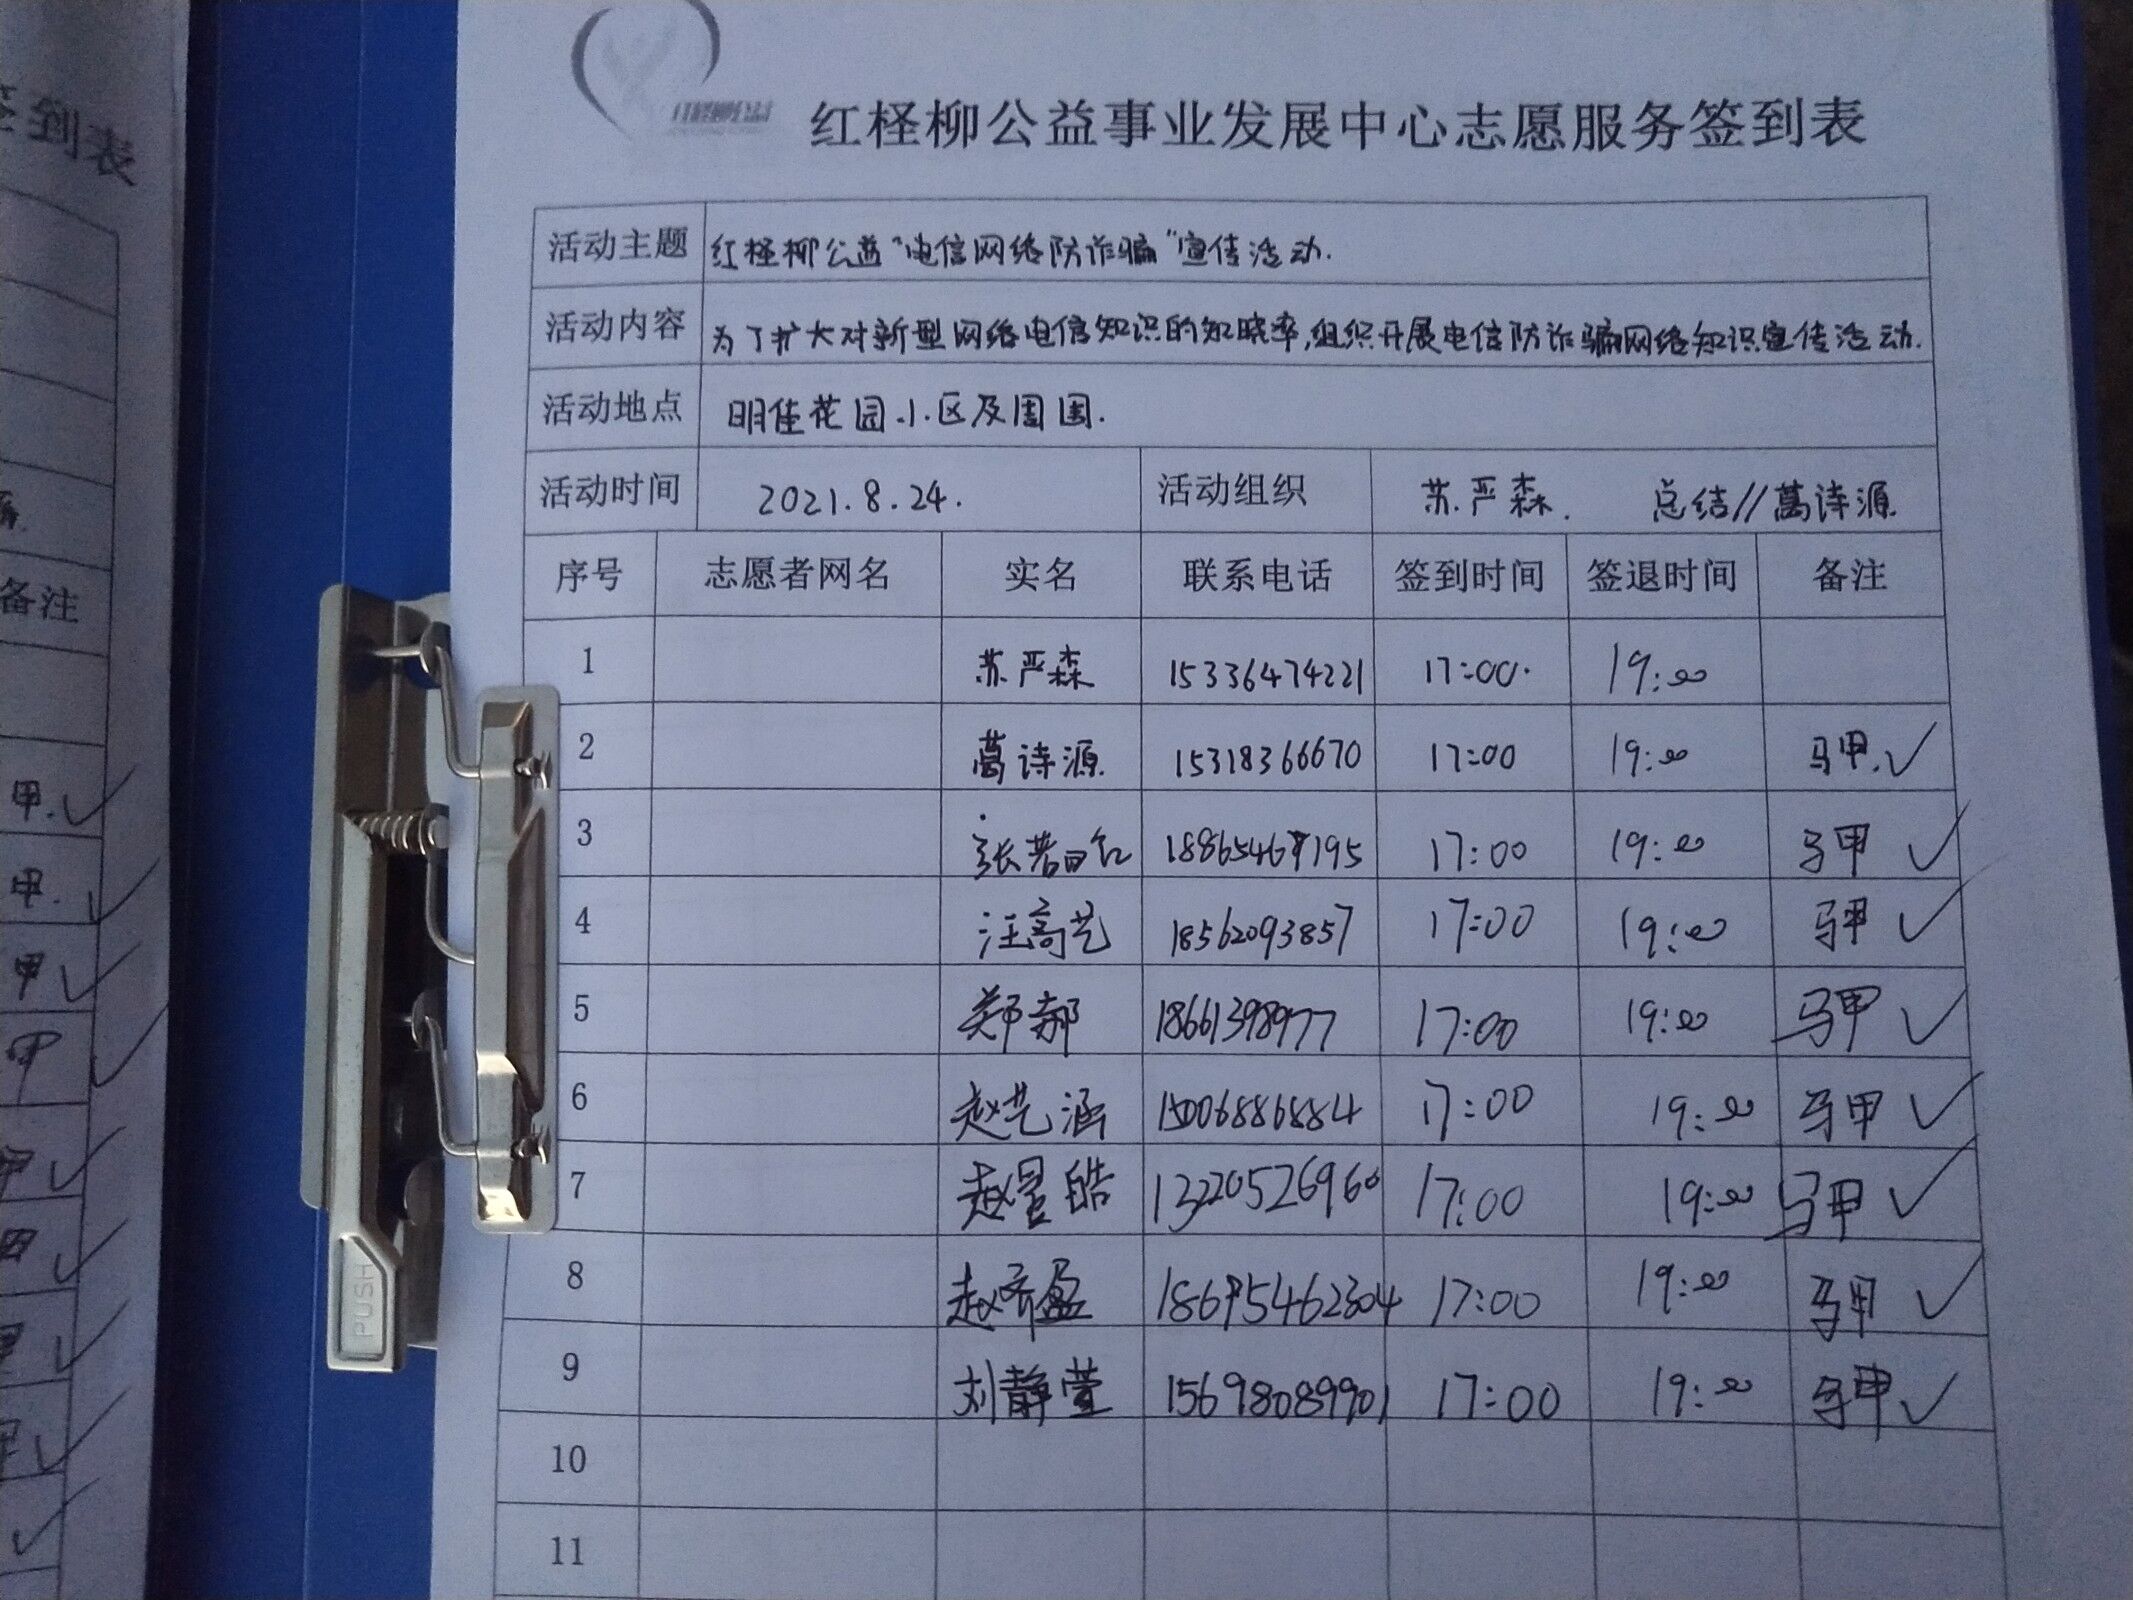 红柽柳公益事业发展中心志愿服务签到表
活动主题 红柽柳公益“电信网络防诈骗”宣传活动.
活动内容 为了扩大对新型网络电信知识的知晓率,组织开展电信防诈骗网络知识宣传活动.
活动地点 明佳花园小区及周围.
活动时间 2021.8.24. 活动组织 苏严森. 总结//葛诗源
序号 志愿者网名 实名 联系电话 签到时间 签退时间 备注
1 苏严森 15336474221 17:00. 19:00
2 葛诗源 15318366670 17:00 19:00 马甲.✓
3 17:00 19:00 马甲 ✓
4 汪高艺 18562093857 17:00 19:00 马甲 ✓
5 郑郝 18661398977 17:00 19:00 马甲 ✓
6 赵艺涵 15006886884 17:00 19:00 马甲 ✓
7 赵昱皓 13220526960 17:00 19:00 马甲 ✓
8 赵齐盈 17:00 19:00 马甲 ✓
9 刘静萱 15698089901 17:00 19:00 马甲 ✓
10
11
签到表
备注
甲.✓
甲.✓
甲✓
甲✓
甲✓
PUSH